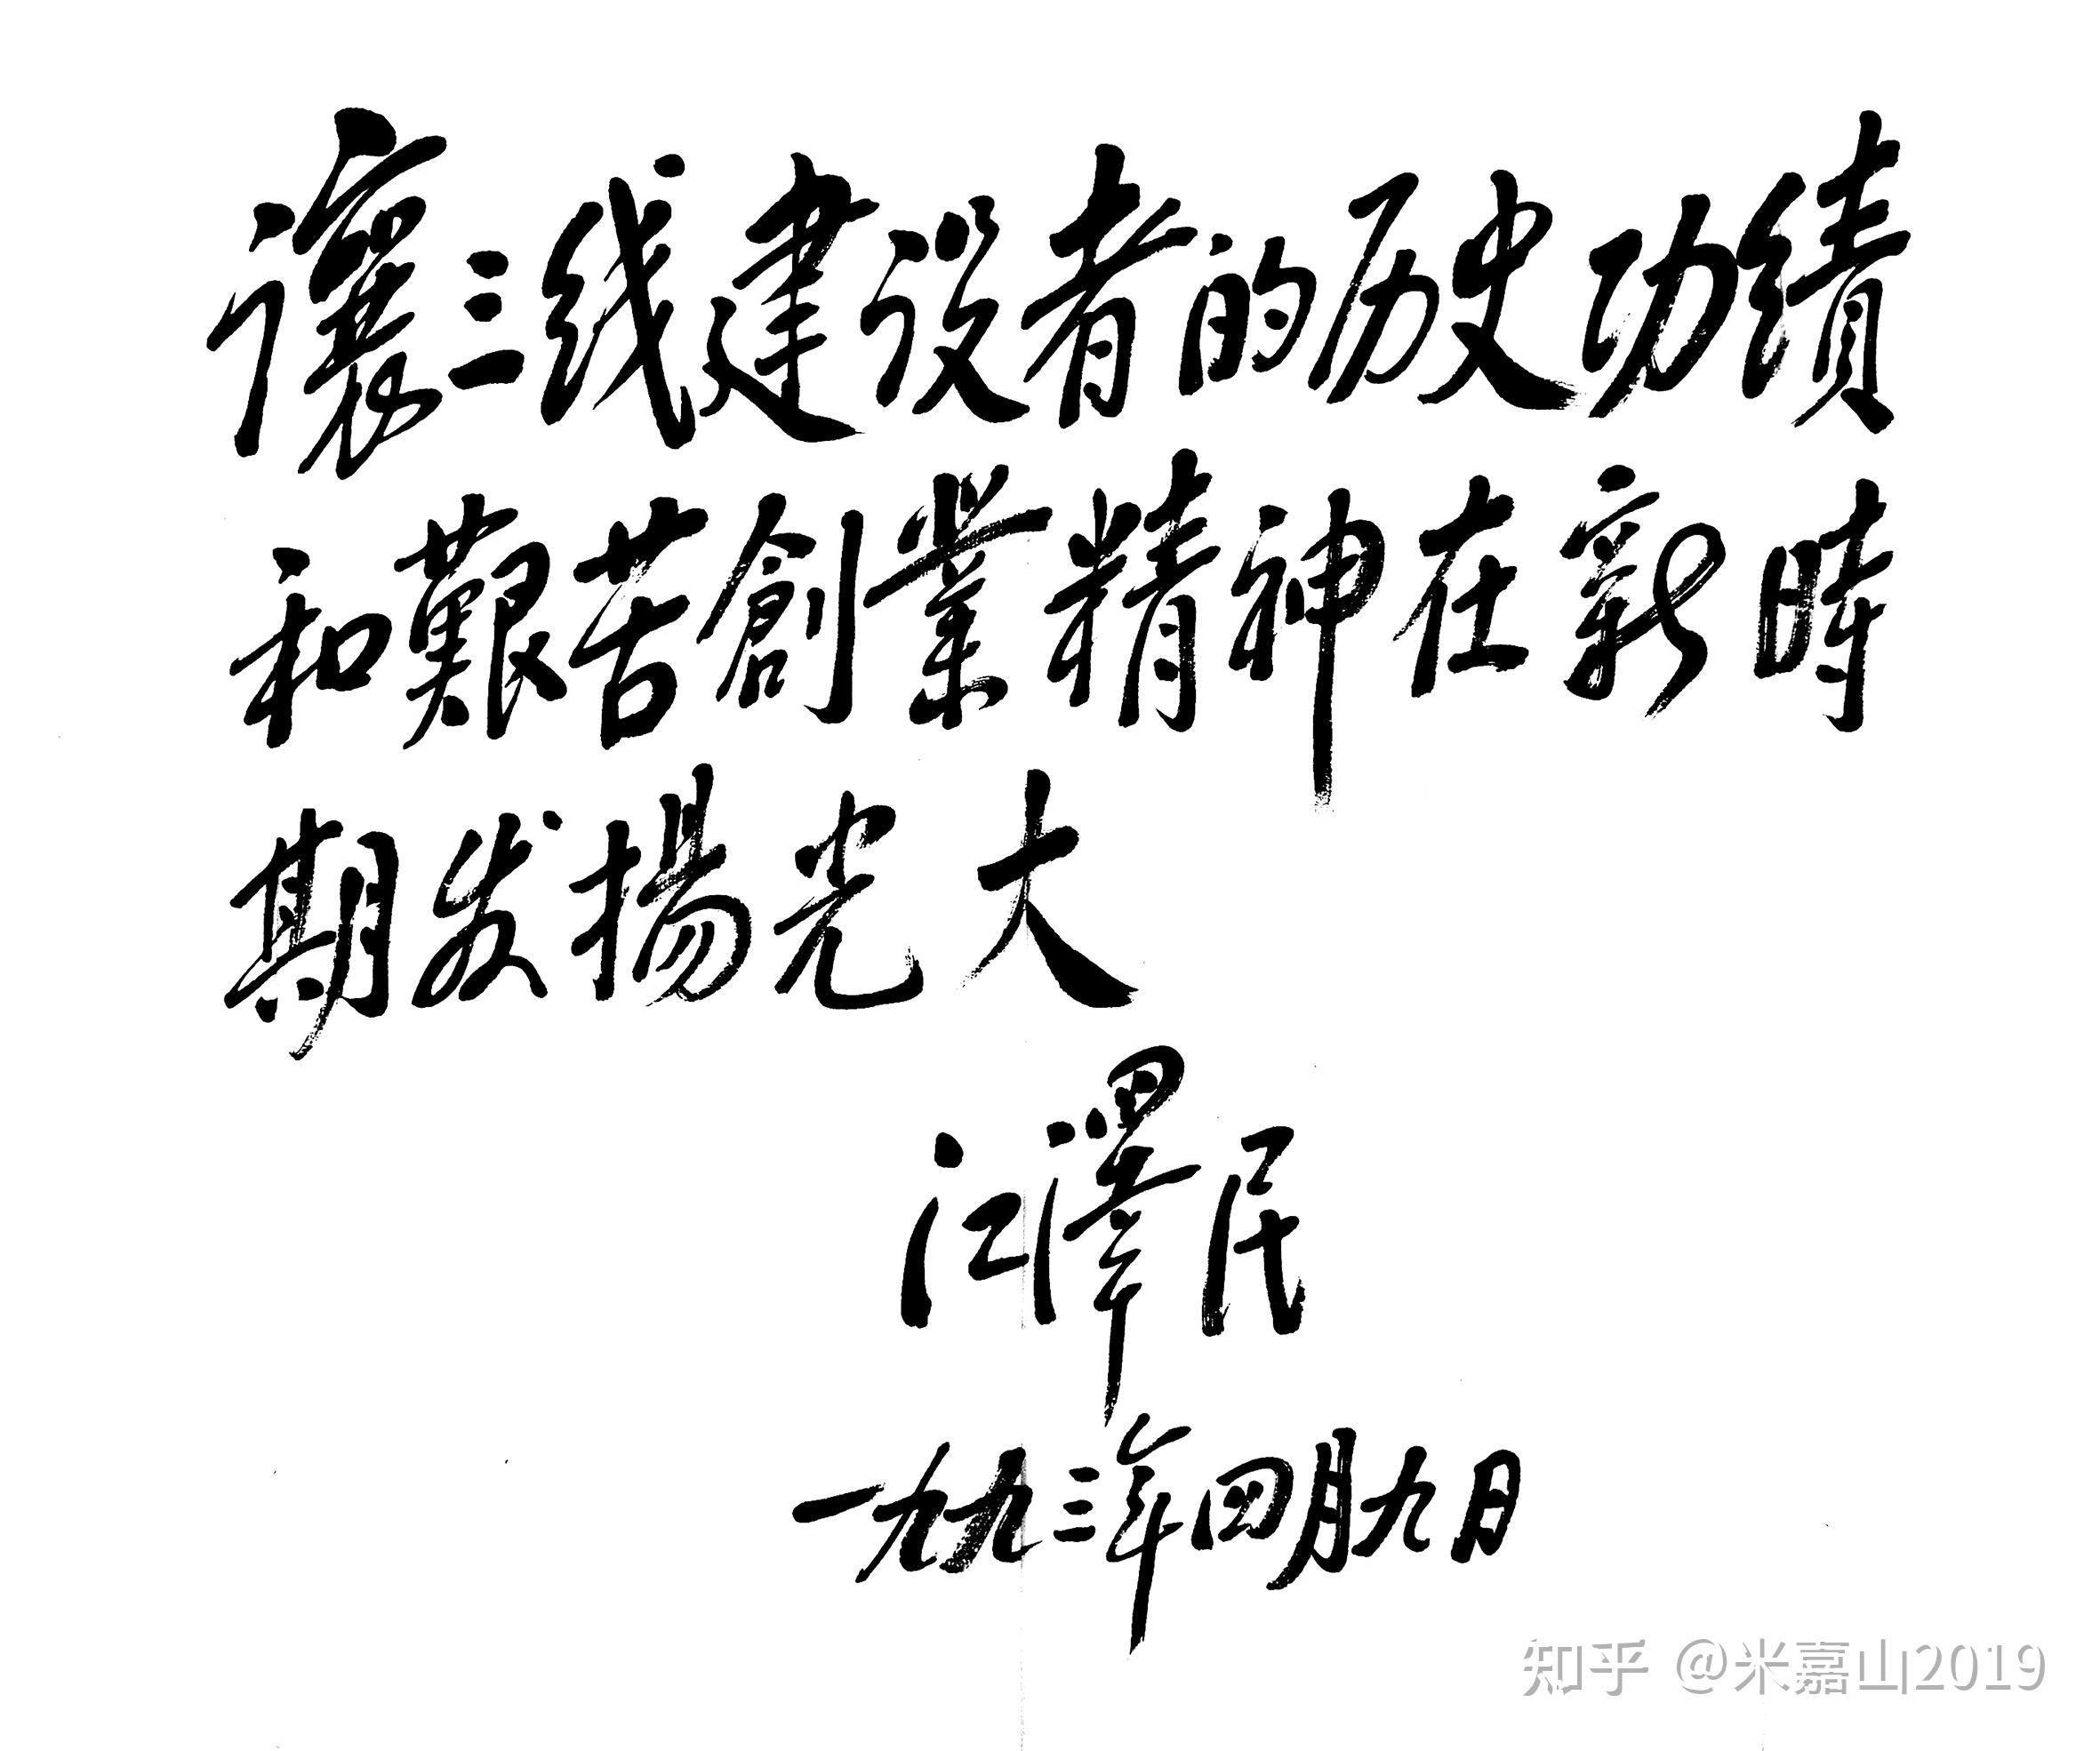 讓三线建设者的历史功績
和艱苦創業精神在新時
期发揚光大
江澤民
一九九三年四月九日
知乎 @米嘉山2019